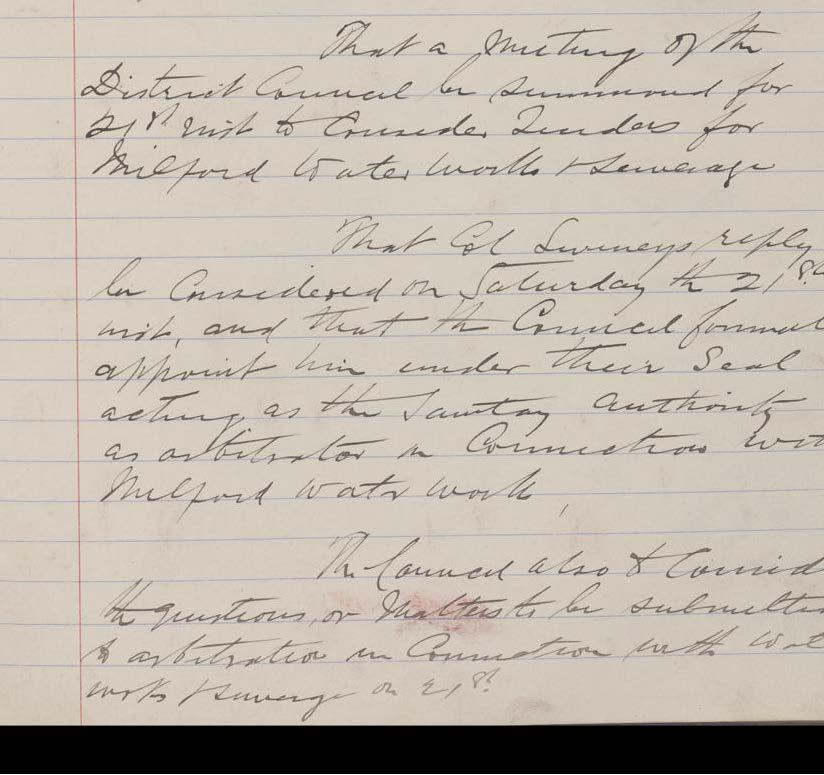 That a Meeting of the
District Council be summoned for
21st inst to Consider Tenders for
Milford Water Works & Sewerage
That Col Sweneys reply
be Considered on Saturday the 21st
inst, and that the Council formal
appoint him under their Seal
acting as the Sanitary Authority
as arbitrator in Connection wit
Milford Water Work,
The Council also to Consid
the questions, or Matters to be submitte
to arbitration in Connection with Wat
works & Sewerage on 21st